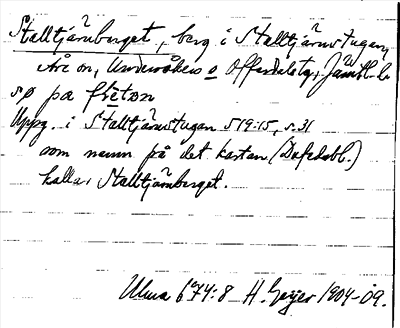 Stalltjärnberget, berg i Stalltjärnstugan,
Åre sn, Undersåkers o Offerdals tg, Jämtl. l.
sø pa
Uppg. i Stalltjärnstugan 519:15, s. 31
som namn på det kartan
kallar Stalltjärnberget.
Ulma 674:8 H. Geijer 1904-09.